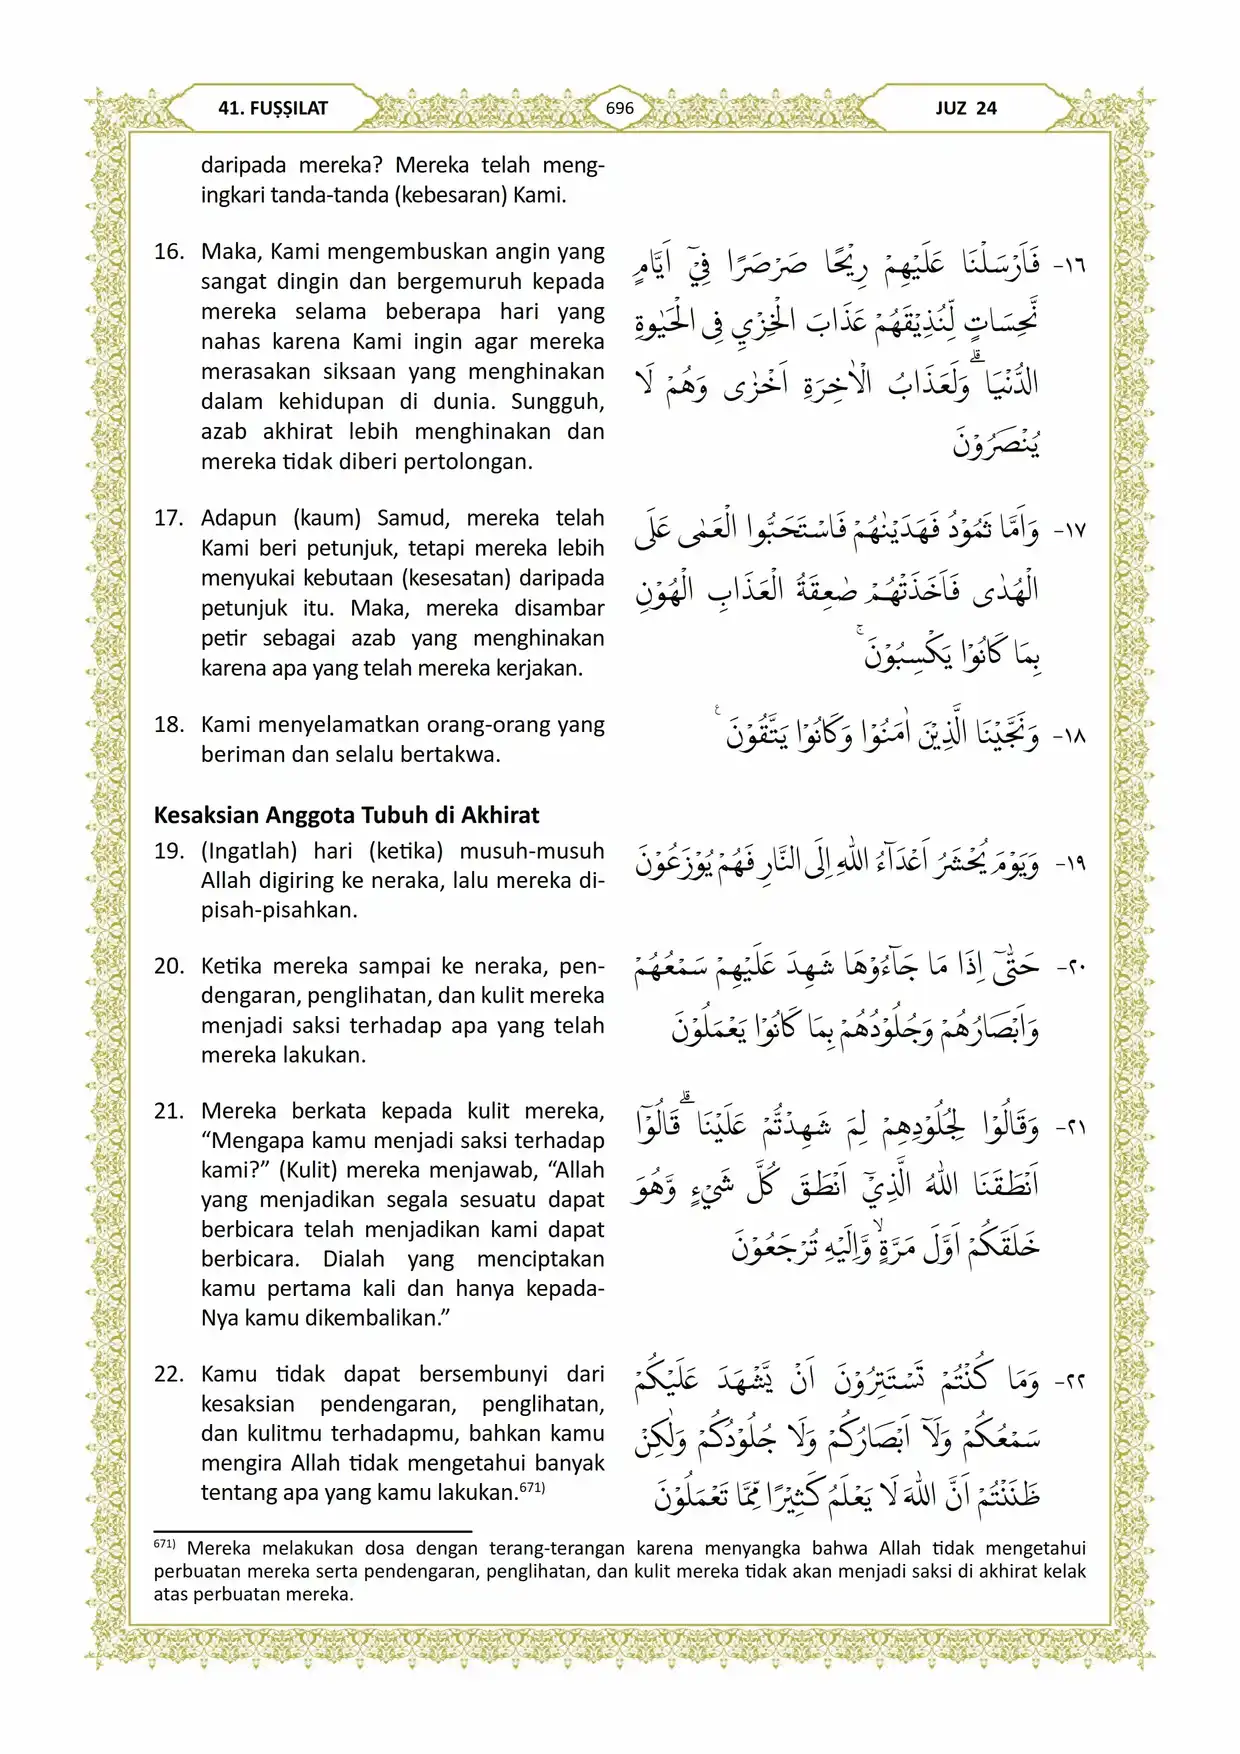 41. FUṢṢILAT
696
JUZ 24
daripada mereka? Mereka telah meng-
ingkari tanda-tanda (kebesaran) Kami.
16. Maka, Kami mengembuskan angin yang
sangat dingin dan bergemuruh kepada
mereka selama beberapa hari yang
nahas karena Kami ingin agar mereka
merasakan siksaan yang menghinakan
dalam kehidupan di dunia. Sungguh,
azab akhirat lebih menghinakan dan
mereka tidak diberi pertolongan.
١٦- فَاَرْسَلْنَا عَلَيْهِمْ رِيْحًا صَرْصَرًا فِيْٓ اَيَّامٍ
نَّحِسَاتٍ لِّنُذِيْقَهُمْ عَذَابَ الْخِزْيِ فِى الْحَيٰوةِ
الدُّنْيَا ۗوَلَعَذَابُ الْاٰخِرَةِ اَخْزٰى وَهُمْ لَا
يُنْصَرُوْنَ
17. Adapun (kaum) Samud, mereka telah
Kami beri petunjuk, tetapi mereka lebih
menyukai kebutaan (kesesatan) daripada
petunjuk itu. Maka, mereka disambar
petir sebagai azab yang menghinakan
karena apa yang telah mereka kerjakan.
١٧- وَاَمَّا ثَمُوْدُ فَهَدَيْنٰهُمْ فَاسْتَحَبُّوا الْعَمٰى عَلَى
الْهُدٰى فَاَخَذَتْهُمْ صٰعِقَةُ الْعَذَابِ الْهُوْنِ
بِمَا كَانُوْا يَكْسِبُوْنَ ۚ
18. Kami menyelamatkan orang-orang yang
beriman dan selalu bertakwa.
١٨- وَنَجَّيْنَا الَّذِيْنَ اٰمَنُوْا وَكَانُوْا يَتَّقُوْنَ ࣖ
Kesaksian Anggota Tubuh di Akhirat
19. (Ingatlah) hari (ketika) musuh-musuh
Allah digiring ke neraka, lalu mereka di-
pisah-pisahkan.
١٩- وَيَوْمَ يُحْشَرُ اَعْدَاۤءُ اللّٰهِ اِلَى النَّارِ فَهُمْ يُوْزَعُوْنَ
20. Ketika mereka sampai ke neraka, pen-
dengaran, penglihatan, dan kulit mereka
menjadi saksi terhadap apa yang telah
mereka lakukan.
٢٠- حَتّٰىٓ اِذَا مَا جَاۤءُوْهَا شَهِدَ عَلَيْهِمْ سَمْعُهُمْ
وَاَبْصَارُهُمْ وَجُلُوْدُهُمْ بِمَا كَانُوْا يَعْمَلُوْنَ
21. Mereka berkata kepada kulit mereka,
“Mengapa kamu menjadi saksi terhadap
kami?” (Kulit) mereka menjawab, “Allah
yang menjadikan segala sesuatu dapat
berbicara telah menjadikan kami dapat
berbicara. Dialah yang menciptakan
kamu pertama kali dan hanya kepada-
Nya kamu dikembalikan.”
٢١- وَقَالُوْا لِجُلُوْدِهِمْ لِمَ شَهِدْتُّمْ عَلَيْنَا ۗقَالُوْٓا
اَنْطَقَنَا اللّٰهُ الَّذِيْٓ اَنْطَقَ كُلَّ شَيْءٍ وَّهُوَ
خَلَقَكُمْ اَوَّلَ مَرَّةٍۙ وَّاِلَيْهِ تُرْجَعُوْنَ
22. Kamu tidak dapat bersembunyi dari
kesaksian pendengaran, penglihatan,
dan kulitmu terhadapmu, bahkan kamu
mengira Allah tidak mengetahui banyak
tentang apa yang kamu lakukan.671)
٢٢- وَمَا كُنْتُمْ تَسْتَتِرُوْنَ اَنْ يَّشْهَدَ عَلَيْكُمْ
سَمْعُكُمْ وَلَآ اَبْصَارُكُمْ وَلَا جُلُوْدُكُمْ وَلٰكِنْ
ظَنَنْتُمْ اَنَّ اللّٰهَ لَا يَعْلَمُ كَثِيْرًا مِّمَّا تَعْمَلُوْنَ
671) Mereka melakukan dosa dengan terang-terangan karena menyangka bahwa Allah tidak mengetahui
perbuatan mereka serta pendengaran, penglihatan, dan kulit mereka tidak akan menjadi saksi di akhirat kelak
atas perbuatan mereka.